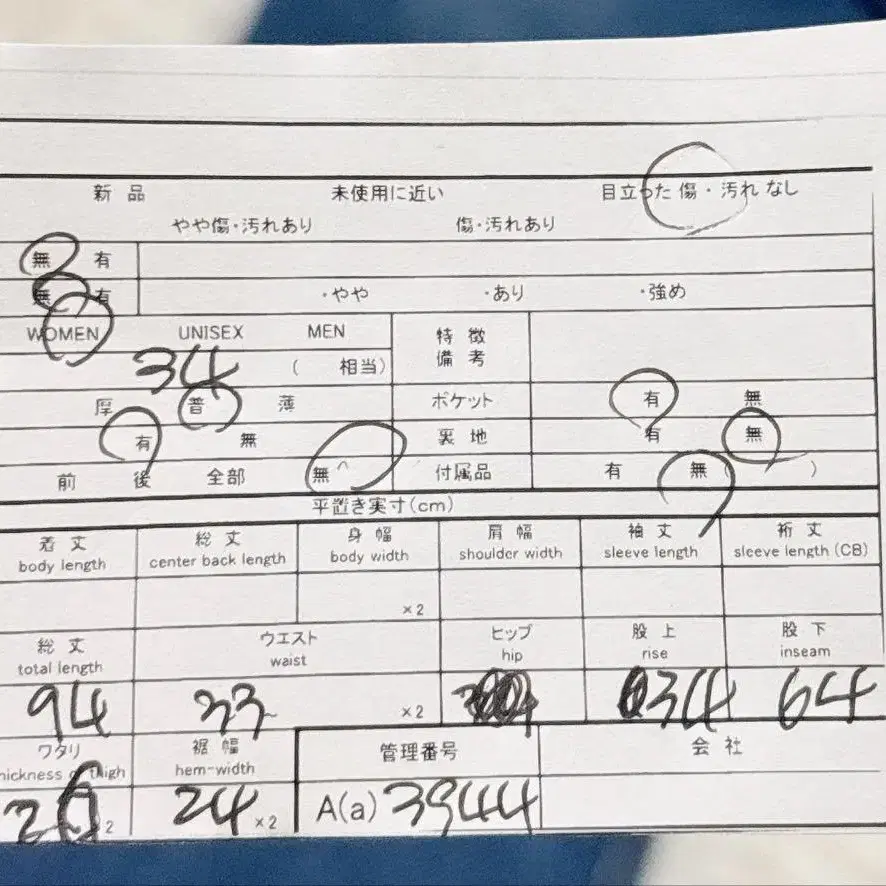 新品 未使用に近い 目立った傷・汚れなし
やや傷・汚れあり 傷・汚れあり
無 有
無 有 ・やや ・あり ・強め
WOMEN UNISEX MEN 特徴
備考
34 ( 相当)
厚 普 薄 ポケット 有 無
有 無 裏地 有 無
前 後 全部 無 付属品 有 無 ( )
平置き実寸(cm)
着丈 総丈 身幅 肩幅 袖丈 裄丈
body length center back length body width shoulder width sleeve length sleeve length (CB)
×2
総丈 ウエスト ヒップ 股上 股下
total length waist hip rise inseam
94 33 ×2 34 64
ワタリ 裾幅 管理番号 会社
hickness of thigh hem-width
24 ×2 A(a) 3944